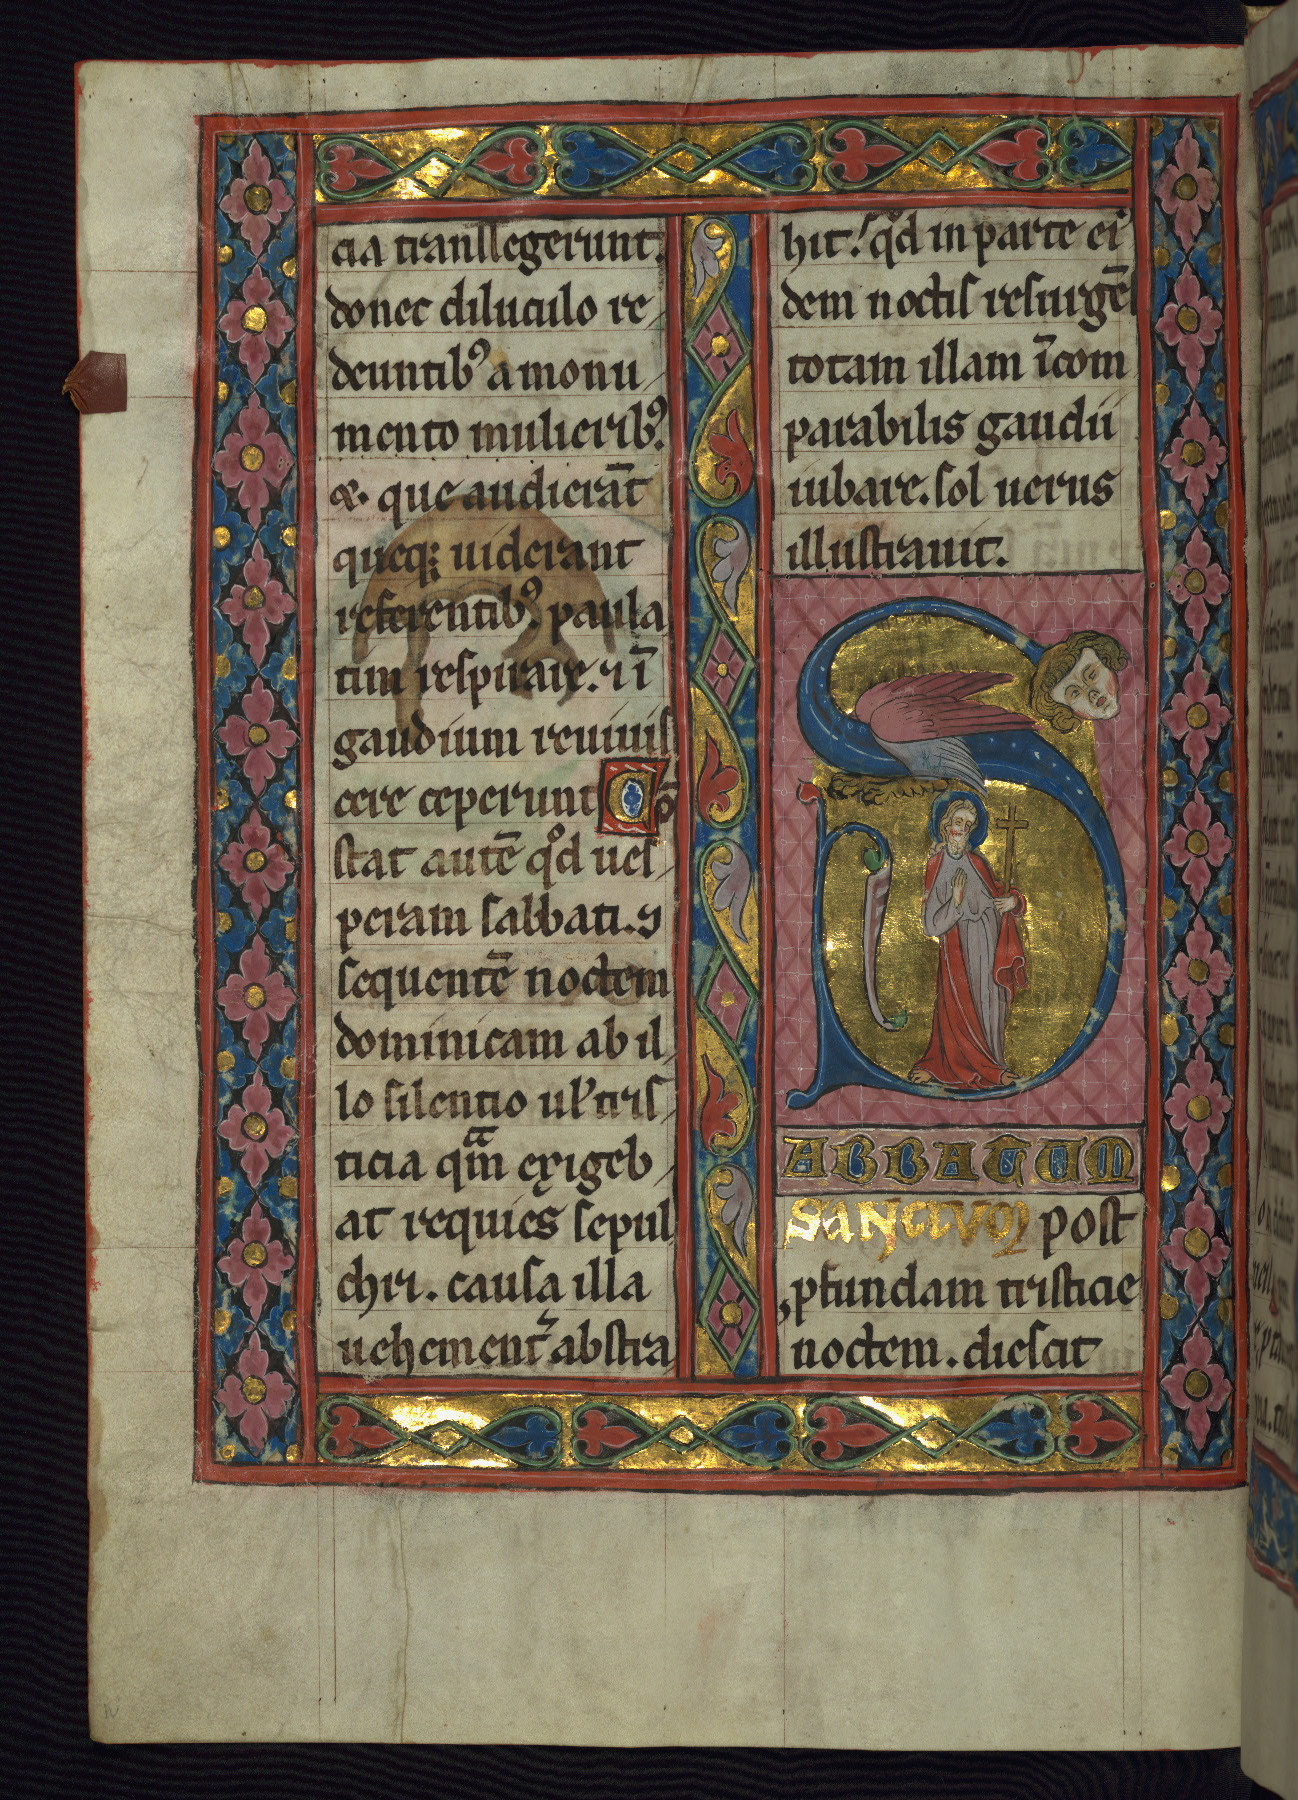 cia transſegerunt.
donec diluculo re
deuntibꝰ a monu
mento mulieribꝰ.
&. que audierāt
queq; uiderant
referentibꝰ. paula
tim reſpirare. ⁊ ī
gaudium reuiuiſ
cere ceperunt Cō
ſtat autē qͦd ueſ
peram ſabbati. ⁊
ſequentē noctem
dominicam ab il
lo ſilentio ul' triſ
ticia qͣm exigeb
at requies ſepul
chri. cauſa illa
uehement͛ abſtra
hit. qͦd in parte ei
dem noctiſ reſurgēſ
totam illam īcom
parabilis gaudii
iubare. ſol uerus
illuſtrauit.
S
ABBATUM
SANCTVM post
ꝓfundam triſticie
noctem. dieſcit